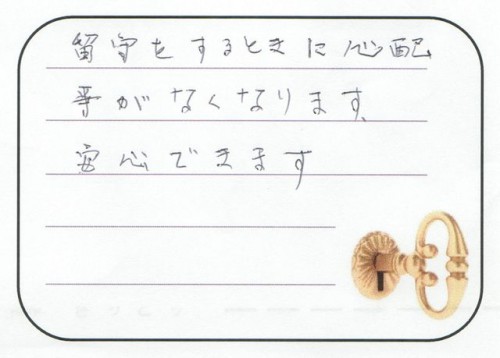 留守をするときに心配
事がなくなります。
安心できます